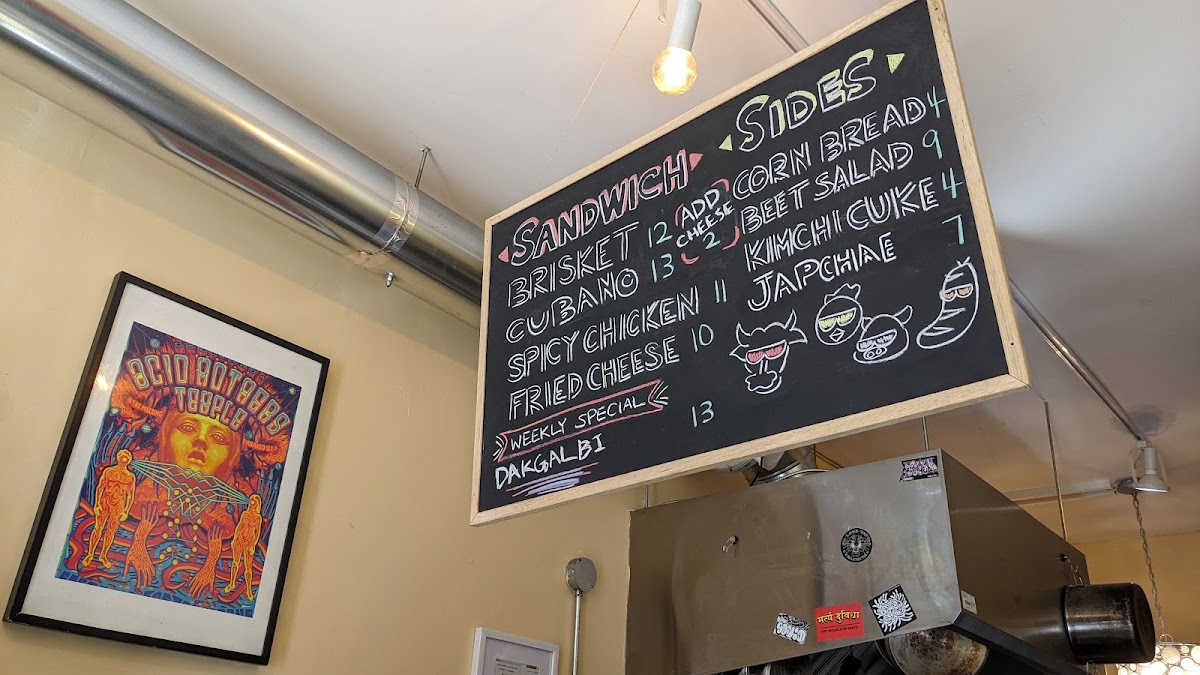 SANDWICH
BRISKET 12
CUBANO 13
ADD
CHEESE
2
SPICY CHICKEN 11
FRIED CHEESE 10
WEEKLY SPECIAL
DAKGALBI 13
SIDES
CORN BREAD 4
BEET SALLAD 9
KIMCHI CUKE 4
JAPCHAE 7
ACID MOTHERS
TEMPLE